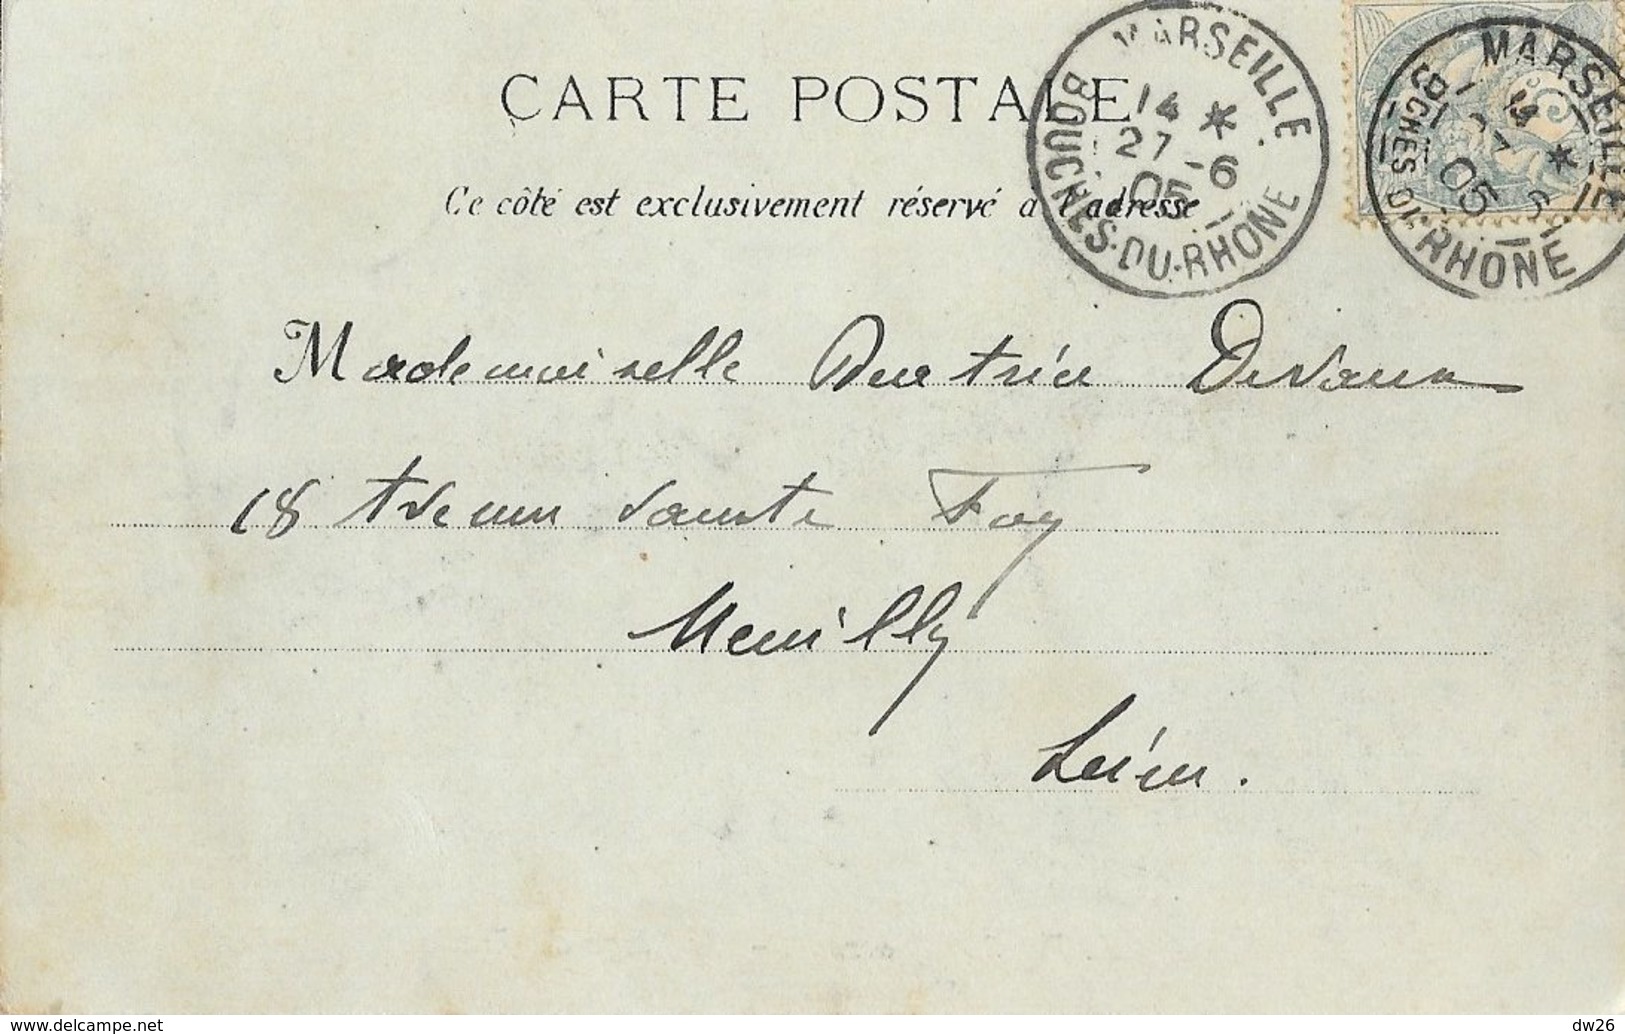 CARTE POSTALE
Ce côté est exclusivement réservé à l'adresse
MARSEILLE
14 *
27 -6
05
BOUCHES-DU-RHONE
MARSEILLE
14 *
05
BCHES DU-RHONE
Mademoiselle Beatrice Devaux
18 Avenue Sainte Foy
Neuilly
Seine.
www.delcampe.net
dw26